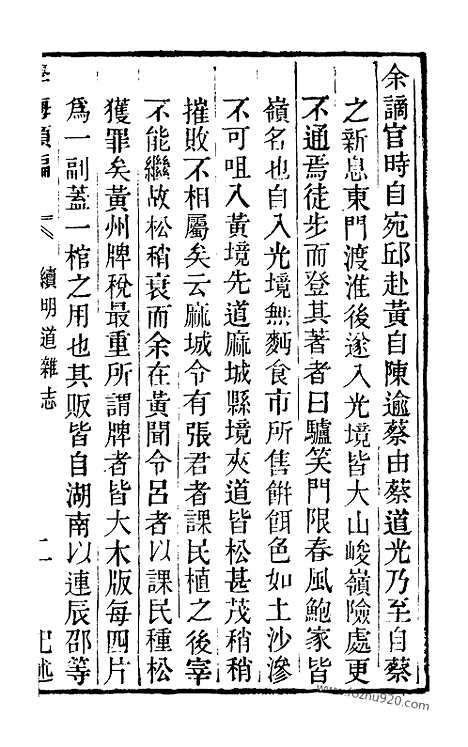 余謫官時自宛邱赴黃自陳逾蔡由蔡道光乃至自蔡
之新息東門渡淮後遂入光境皆大山峻嶺險處更
不通焉徒步而登其著者曰驢笑門限春風鮑家皆
嶺名也自入光境無麪食市所售餅餌色如土沙滲
不可咀入黃境先道麻城縣境夾道皆松甚茂稍稍
摧敗不相屬矣云麻城令有張君者課民植之後宰
不能繼故松稍衰而余在黃聞令呂者以課民種松
獲罪矣黃州牌稅最重所謂牌者皆大木版每四片
爲一副蓋一棺之用也其販皆自湖南以連辰邵等
學海類編 續明道雜志 二 記述
www.fozhu920.com